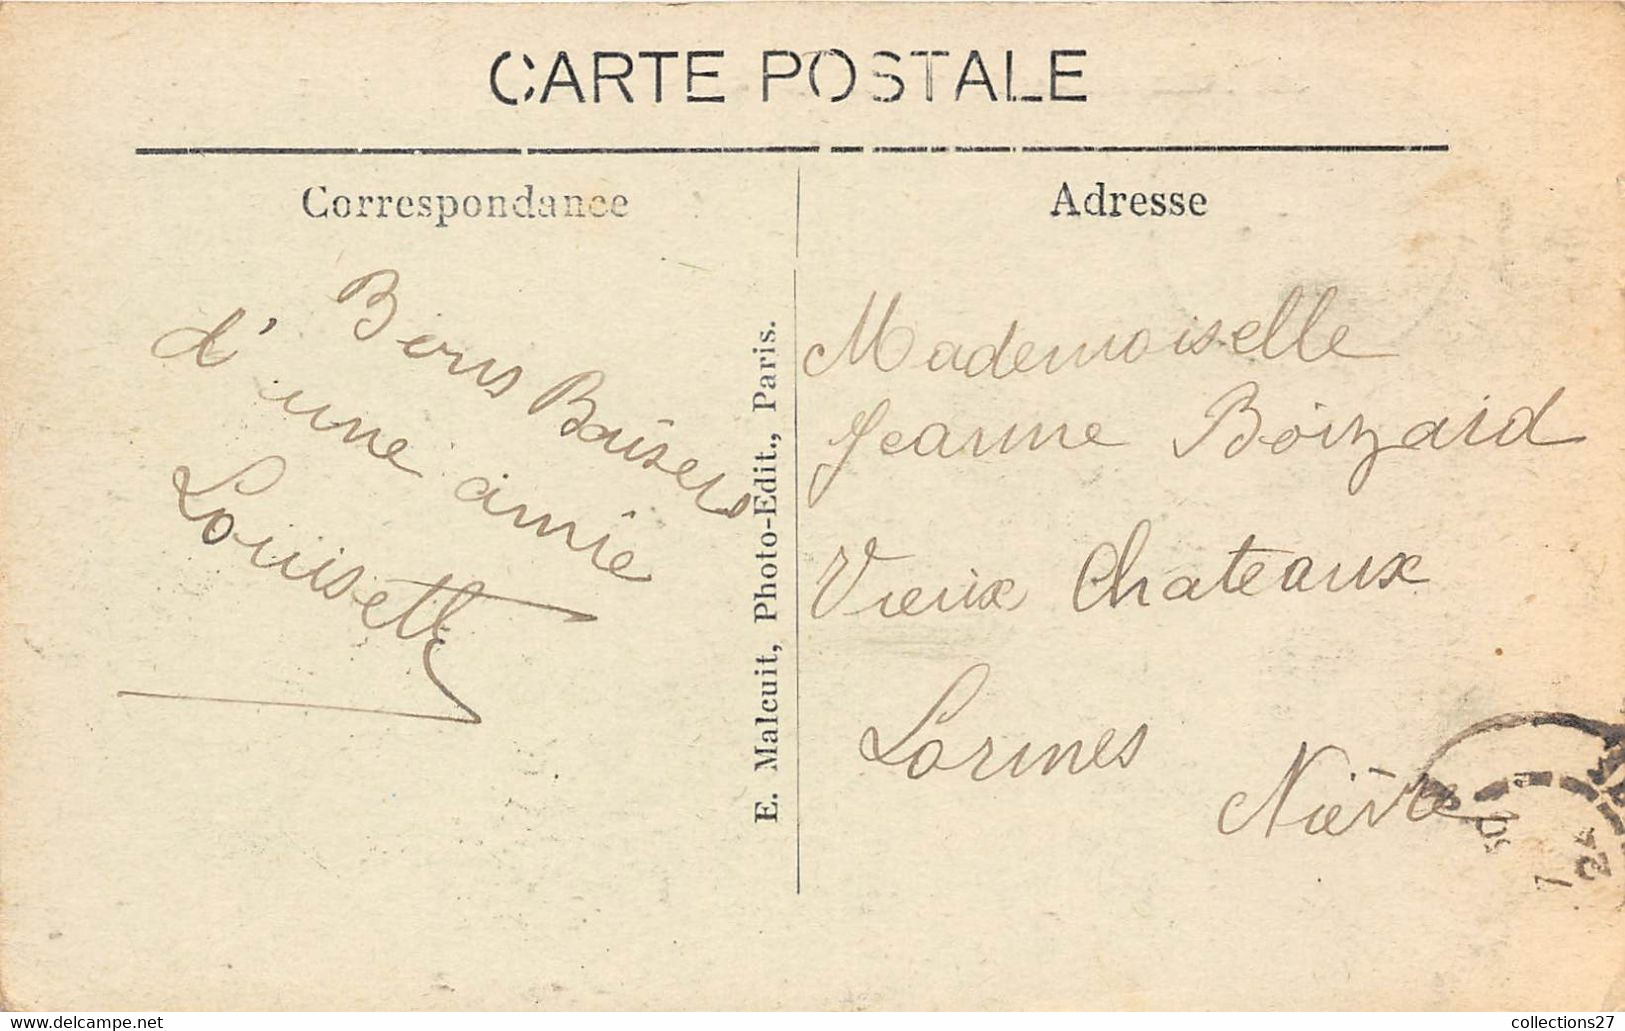 CARTE POSTALE
Correspondance
Bons Baisers
d'une amie
Louisette
E. Malcuit, Photo-Edit., Paris.
Adresse
Mademoiselle
Jeanne Boizard
Vieux Chateaux
Lormes
Nièvre
collections27